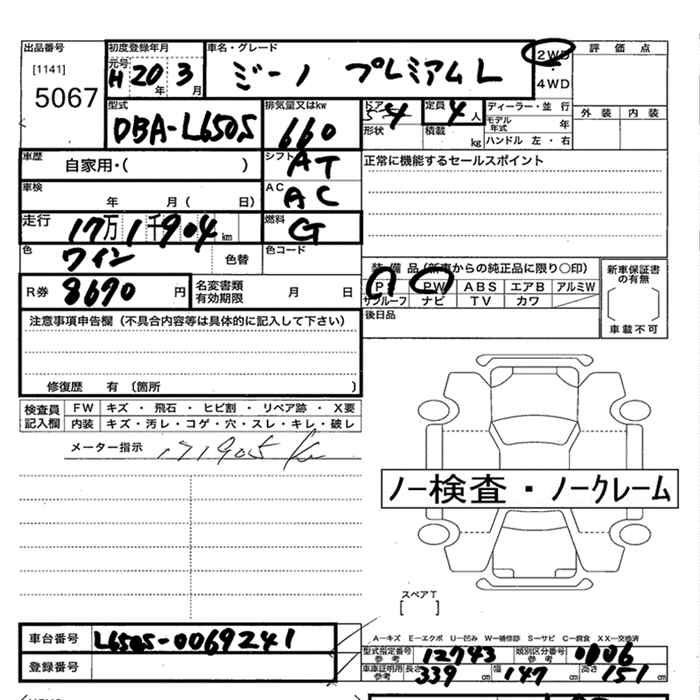 出品番号 初度登録年月 車名・グレード 2WD 評価点
[1141] 元号 H 20年 3月 ジーノ プレミアムL ・
5067 4WD
型式 排気量又はkw ドア 4 定員 4人 ディーラー・並行 外装 内装
DBA-L650S 660 形状 積載 kg モデル年式 年
ハンドル 左・右
車歴 自家用・( ) シフト AT 正常に機能するセールスポイント
車検 年 月( 日) AC AC
走行 17万1千904km 燃料 G
色 ワイン 色替 色コード
装備品(新車からの純正品に限り○印) 新車保証書の有無
R券 8690円 名変書類有効期限 月 日 PS PW ABS エアB アルミW
サンルーフ ナビ TV カワ
注意事項申告欄(不具合内容等は具体的に記入して下さい) 後日品 車載不可
修復歴 有(箇所 )
検査員 FW キズ・飛石・ヒビ割・リペア跡・X要
記入欄 内装 キズ・汚レ・コゲ・穴・スレ・キレ・破レ
メーター指示 171905 Km
ノー検査・ノークレーム
スペアT
[ ]
車台番号 L650S-0069241 A-キズ E-エクボ U-凹み W-補修跡 S-サビ C-腐食 XX-交換済
型式指定番号 参考 12743 類別区分番号 参考 0006
登録番号 車庫証明用 参考 長さ 339cm 幅 147cm 高さ 151cm